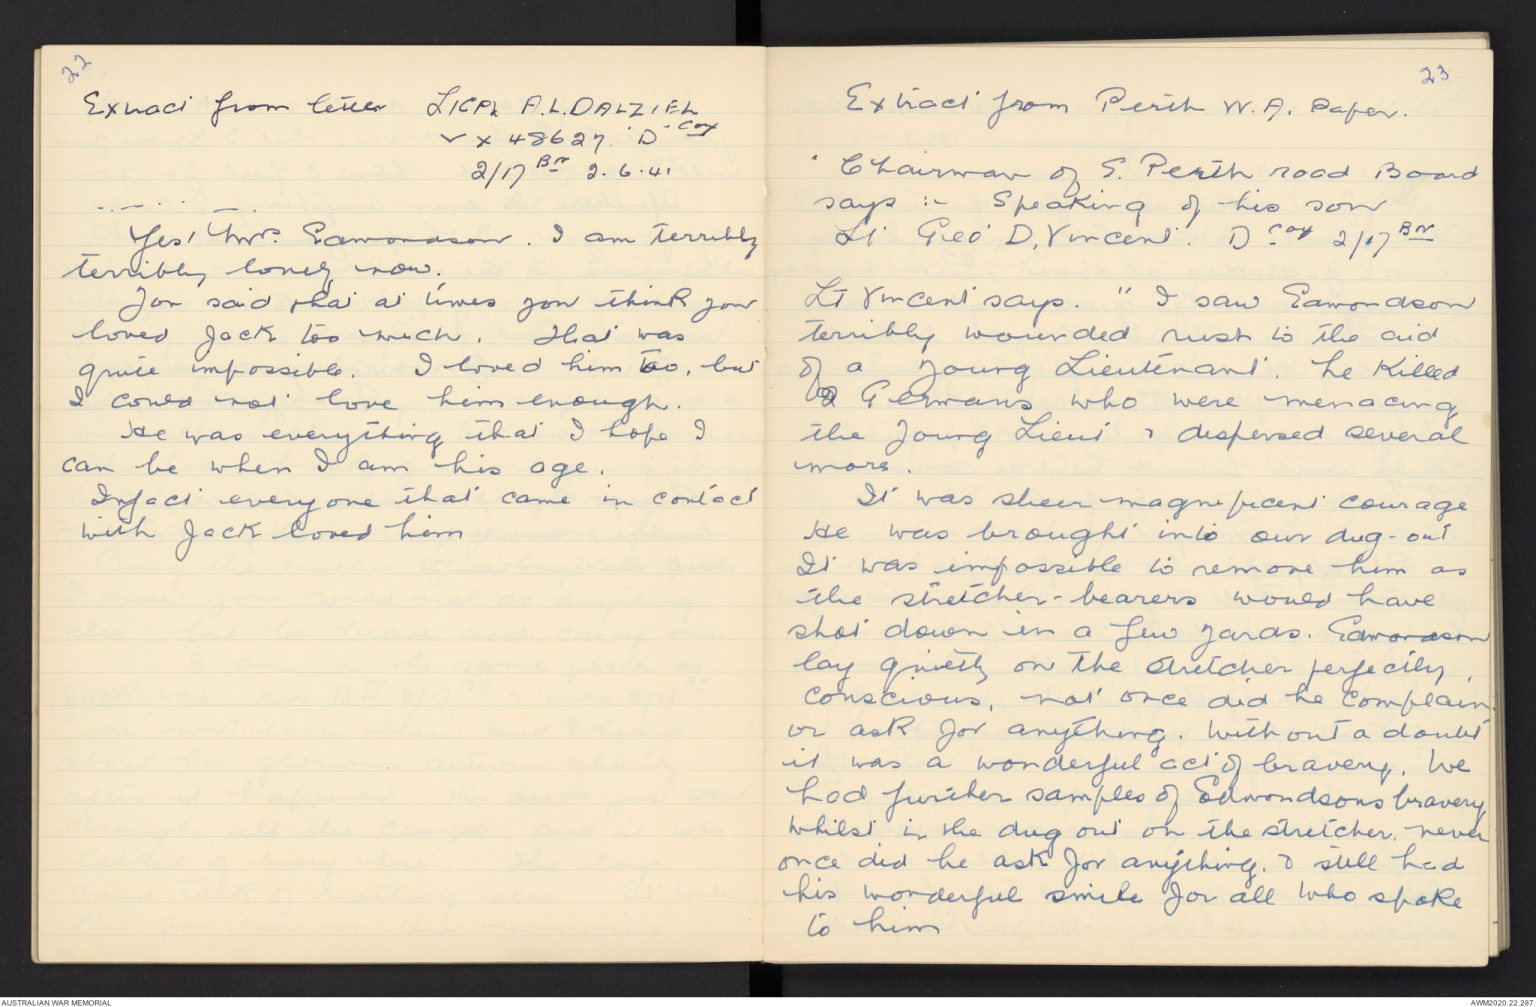 22
Extract from letter L/CPL A.L. DALZIEL
VX 48627. D Coy
2/17 Bn 2.6.41
Yes! Mrs. Edmondson. I am terribly
terribly lonely now.
You said that at times you think you
loved Jack too much. That was
quite impossible. I loved him too, but
I could not love him enough.
He was everything that I hope I
can be when I am his age.
Infact everyone that came in contact
with Jack loved him
23
Extract from Perth W.A. Paper.
Chairman of S. Perth road Board
says :- Speaking of his son
Lt Geo D. Vincent. D Coy 2/17 Bn
Lt Vincent says. " I saw Edmondson
terribly wounded rush to the aid
of a young Lieutenant. he killed
2 Germans who were menacing
the young Lieut & dispersed several
more.
It was sheer magnificent courage
He was brought into our dug-out
It was impossible to remove him as
the stretcher-bearers would have
shot down in a few yards. Edmondson
lay quietly on the stretcher perfectly,
conscious, not once did he complain
or ask for anything. Without a doubt
it was a wonderful act of bravery. We
had further samples of Edmondsons bravery
whilst in the dug out on the stretcher. never
once did he ask for anything. & still had
his wonderful smile for all who spoke
to him
AUSTRALIAN WAR MEMORIAL
AWM2020.22.287